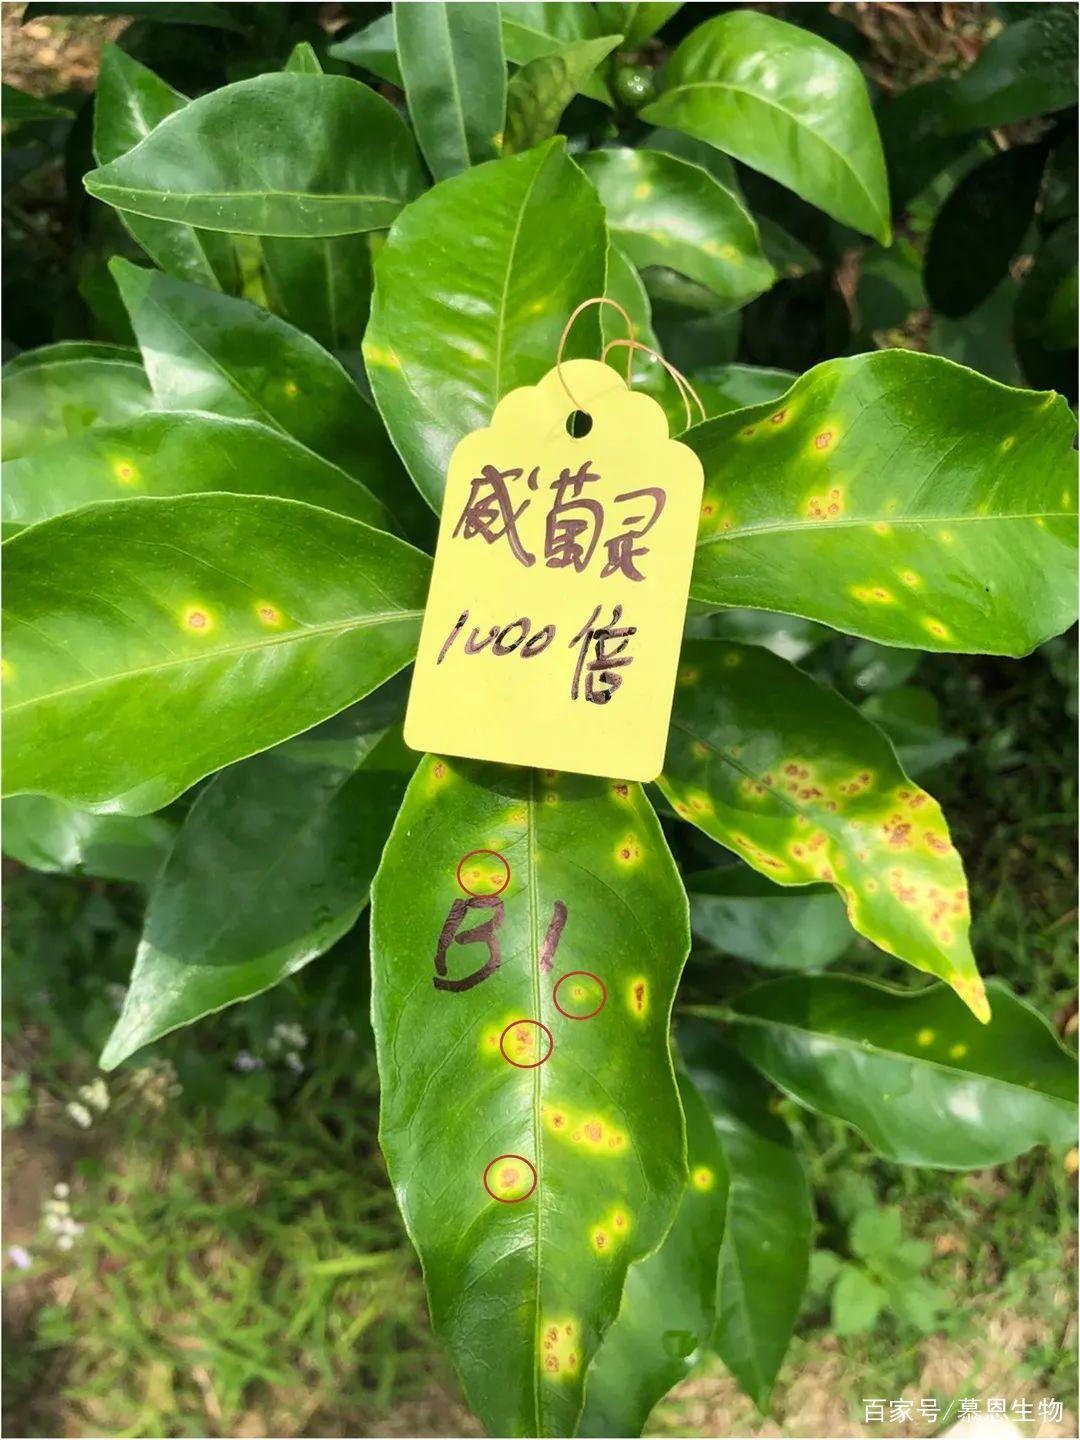 威菌灵
1000倍
B1
百家号/慕恩生物